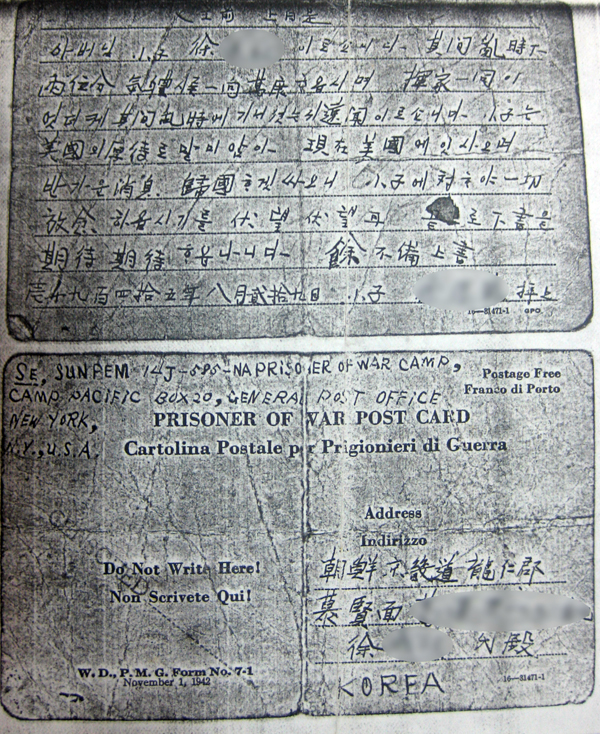 아버님 小子 徐 이로소이다. 其間亂時下
內位分 氣體候一向萬康하옵시며 渾家一同이
美國의 厚待로 말미암아 現在 美國에 있사오며
반가운 消息 歸國하겟사오니 小子에 對하야 一切
放念 하옵시기를 伏望伏望 로 下書를
期待 期待 하옵나니다. 餘 不備上書
壹千九百四拾五年 八月貳拾九日 小子 拜上
16—31471-1 GPO
SE, SUNPEM 14J-585-NA PRISONER OF WAR CAMP,
Postage Free
CAMP PACIFIC BOX20, GENERAL POST OFFICE
Franco di Porto
NEW YORK,
N.Y., U.S.A.
PRISONER OF WAR POST CARD
Cartolina Postale per Prigionieri di Guerra
Address
Indirizzo
Do Not Write Here!
Non Scrivete Qui!
朝鮮京畿道龍仁郡
慕賢面
徐 氏 殿
KOREA
W. D., P. M. G. Form No. 7-1
November 1, 1942
16—31471-1